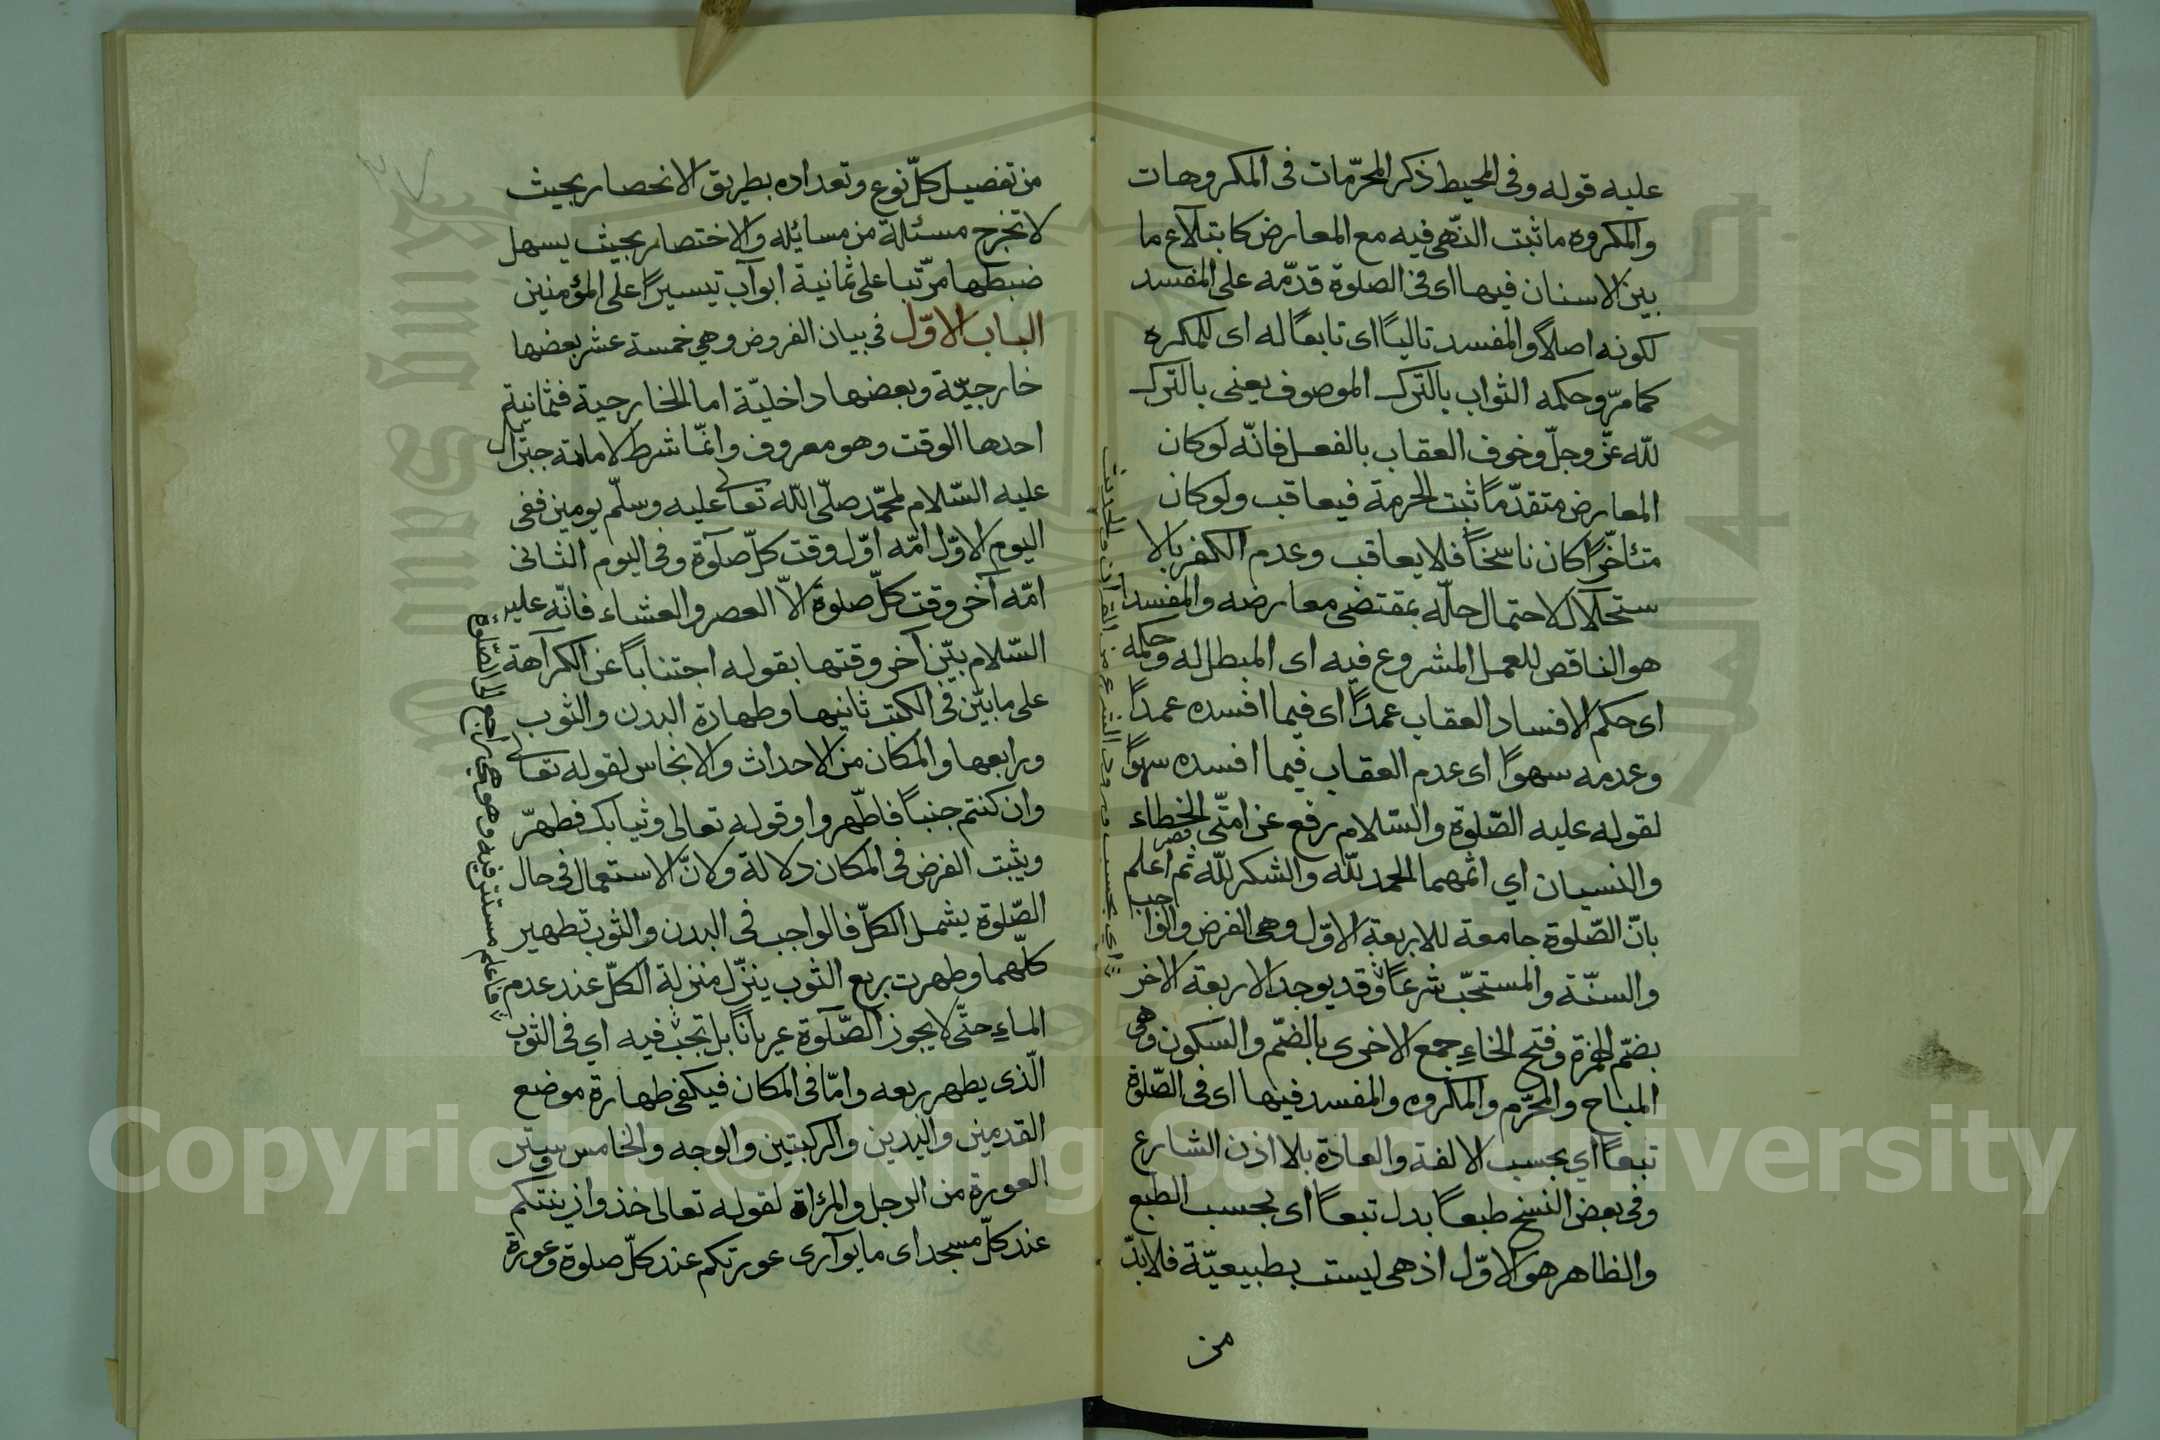 عليه قوله وفى المحيط ذكر المحرّمات فى المكروهات
والمكروه ما ثبت النّهى فيه مع المعارض كابتلاع ما
بين الاسنان فيها اى فى الصلوة قدّمه على المفسد
لكونه اصلاً والمفسد تاليًا اى تابعًا له اى للمكره
كمامرّ وحكمه الثواب بالتّرك الموصوف يعنى بالتّرك
للّه عزّ وجلّ وخوف العقاب بالفعل فانّه لوكان
المعارض متقدّمًا ثبت الحرمة فيعاقب ولوكان
متأخّرًا كان ناسخًا فلا يعاقب وعدم الكفر بالا
ستحلال لاحتمال حلّه بمقتضى معارضه والمفسد
هو الناقض للعمل المشروع فيه اى المبطل له وحكمه
اى حكم الافساد العقاب عمدًا اى فيما افسده عمدًا
وعدمه سهوًا اى عدم العقاب فيما افسده سهوًا
لقوله عليه الصّلوة والسّلام رفع عن امّتى الخطاء
والنسيان اي اثمهما الحمد للّه والشكر للّه ثم اعلم
بانّ الصّلوة جامعة للاربعة الاوّل وهى الفرض والواجب
والسنّة والمستحبّ شرعًا وقد يوجد الاربعة الاخر
بضمّ الهمزة وفتح الخاءِ جمع الاخرى بالضّم والسكون وهى
المباح والمحرّم والمكروه والمفسد فيها اى فى الصّلوة
تبعًا اي بحسب الالفة والعادة بلا اذن الشارع
وفى بعض النسخ طبعًا بدل تبعًا اى بحسب الطبع
والظاهر هو الاوّل اذ هى ليست بطبيعيّة فلابدّ
من
من تفصيل كلّ نوع وتعداده بطريق الانحصار بحيث
لا تخرج مسئلة من مسائله والاختصار بحيث يسهل
ضبطها مرّتبا على ثمانية ابواب تيسيرًا على المؤمنين
الباب الاوّل فى بيان الفروض وهي خمسة عشر بعضها
خارجيّة وبعضها داخليّة اما الخارجية فثمانية
احدها الوقت وهو معروف وانّما شرط لامامة جبرال
عليه السّلام لمحمّد صلّى اللّه تعالى عليه وسلّم يومين ففى
اليوم الاوّل امّه اوّل وقت كلّ صلوة وفى اليوم الثانى
امّه آخر وقت كلّ صلوة الّا العصر والعشاء فانّه عليه
السّلام بيّن آخر وقتها بقوله اجتنابًا عن الكراهة
على ما بيّن فى الكتب ثانيها وطهارة البدن والثوب
ورابعها والمكان من الاحداث والانجاس لقوله تعالى
وان كنتم جنبًا فاطّهروا وقوله تعالى وثيابك فطهّر
ويثبت الفرض فى المكان دلالة ولانّ الاستعمال فى حال
الصّلوة يشمل الكلّ فالواجب فى البدن والثوب تطهير
كلّهما وطهرت ربع الثوب ينزّل منزلة الكلّ عند عدم
الماءِ حتّى لا يجوز الصّلوة عريانًا بل تجب فيه اي فى الثوب
الّذى يطهر ربعه وامّا فى المكان فيكفى طهارة موضع
القدمين واليدين والركبتين والوجه والخامس ستر
العورة من الرجل والمرأة لقوله تعالى خذوا زينتكم
عند كلّ مسجد اى ما يوارى عورتكم عند كلّ صلوة وعورة
فاعلم مستتر فيه وهو راجع الى الصّلوة
Copyright © King Saud University
King Saud University
جامعة الملك سعود
1957